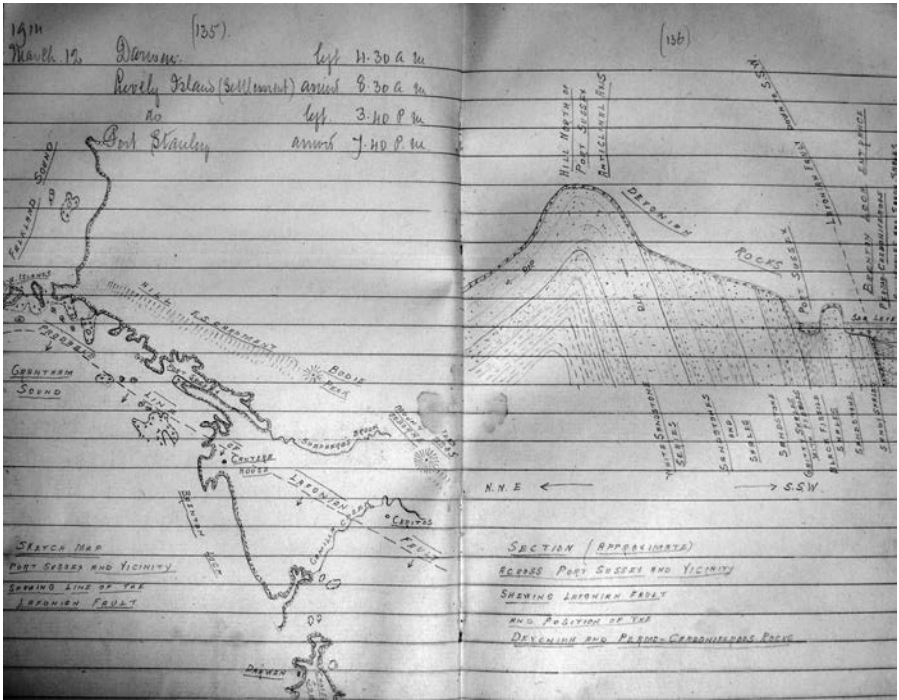 (135)
March 12 Darwin left 4.30 a m
Lively Island (Settlement) arrived 8.30 a m
do left 3.40 P m
Port Stanley arrived 7.40 P m
FALKLAND SOUND
ISLANDS
HILL
ESCARPMENT
BODIE
PEAK
GRANTHAM
SOUND
LINE
OF
LAFONIAN
FAULT
CANTERA
HOUSE
BRENTON LOCH
CAMILLA CREEK
CERITOS
DARWIN
SKETCH MAP
PORT SUSSEX AND VICINITY
SHEWING LINE OF THE
LAFONIAN FAULT
(136)
HILL NORTH OF
PORT SUSSEX
ANTICLINAL AXIS
DEVONIAN
ROCKS
PORT SUSSEX
LAFONIAN FAULT
BRENTON LOCH ENTRANCE
PERMO-CARBONIFEROUS
SEA LEVEL
DIP
DIP
WHITE SANDSTONE
SERIES
SANDSTONES
AND
SHALES
SANDSTONE
BLACK PEBBLE
SHALES
SANDSTONE
N.N.E
S.S.W.
SECTION (APPROXIMATE)
ACROSS PORT SUSSEX AND VICINITY
SHEWING LAFONIAN FAULT
AND POSITION OF THE
DEVONIAN AND PERMO-CARBONIFEROUS ROCKS